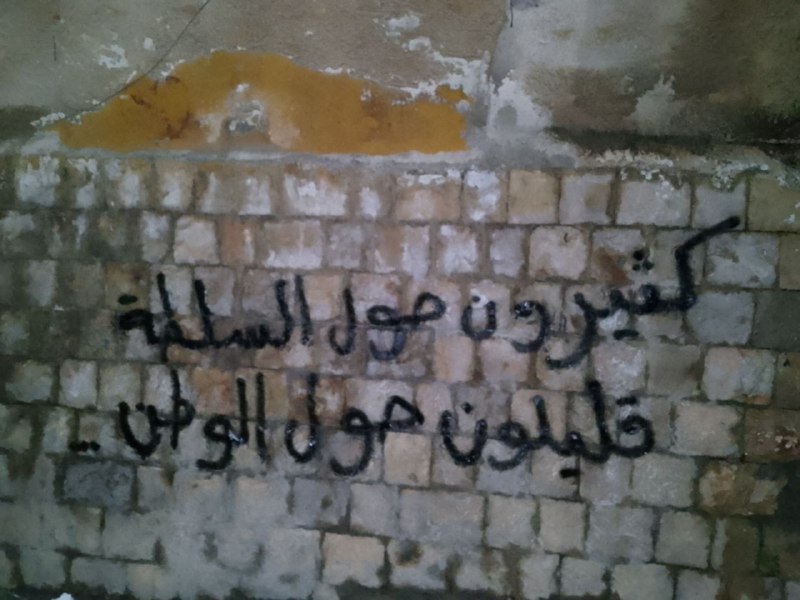 كثيرون حول السلطة
قليلون حول الوطن ..